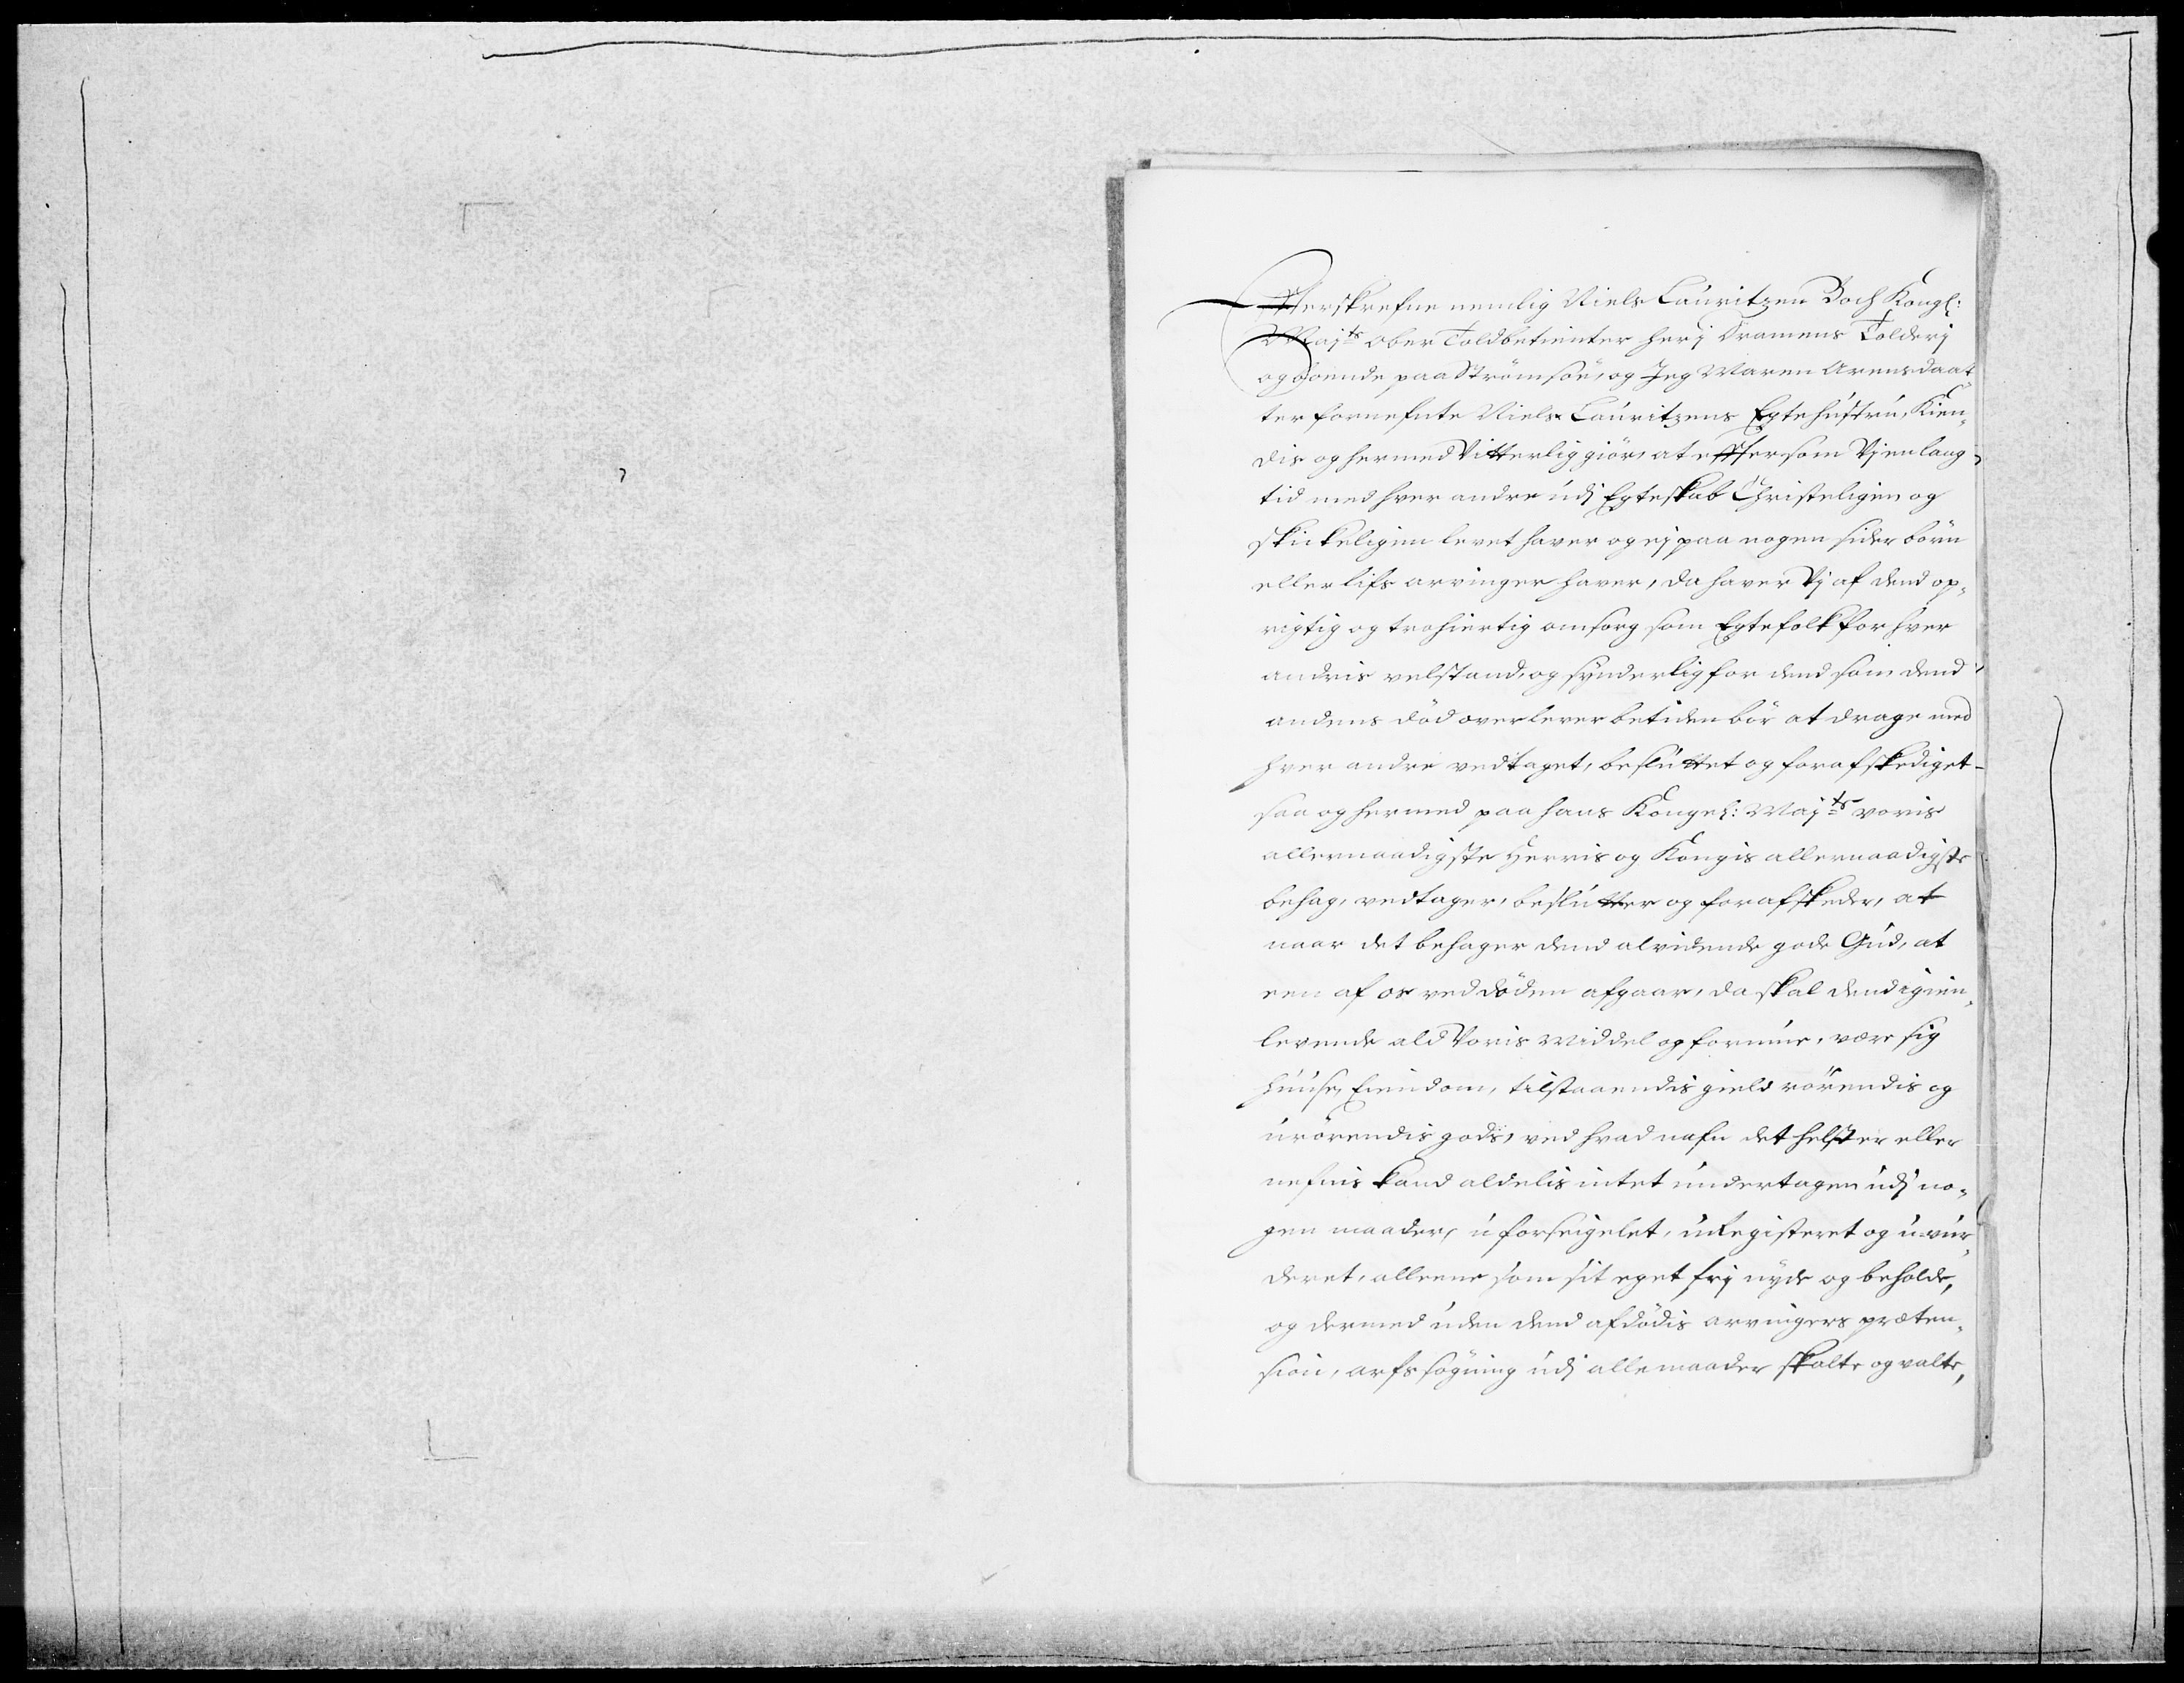 Efterskrefne nemlig Niels Lauritzen Boch Kongl:
Maj:ts ober Toldbetienter her j Dramens Tolderj
og boende paa Strömsöe, og Jeg Maren Arensdaat¬
ter fornefnte Niels Lauritzens Egtehustru, Kien¬
dis og hermed Vitterlig giör, at effter som Vj en lang
tid med hver andre udj Egteskab Christeligen og
skickeligen levet haver og ej paa nogen sider börn
eller lifs arvinger haver, da haver Vj af dend op¬
rigtig og trohiertig omsorg som Egtefolk for hver
andris velstand, og synderlig for dend som dend
andens död overlever betiden bör at drage med
hver andre vedtaget, besluttet og forafskediget
saa og hermed paa hans Kongel: Maj:ts voris
allernaadigste Herris og Kongis allernaadigste
behag, vedtager, beslutter og forafskeder, at
naar det behager dend alvidende gode Gud, at
een af os ved döden afgaar, da skal dend igien¬
levende ald Voris Middel og formue, være sig
huuse, Eiendom, tilstaaendis gield rörendis og
urörendis gods, ved hvad nafn det helst er eller
nefnis kand aldelis intet undertagen udj no¬
gen maader, uforseigelet, uRegisteret og u-vur¬
deret, alleene som sit eget frij nyde og beholde,
og dermed uden dend afdödis arvingers præten¬
sion, arfs sögning udj alle maader skalte og valte,